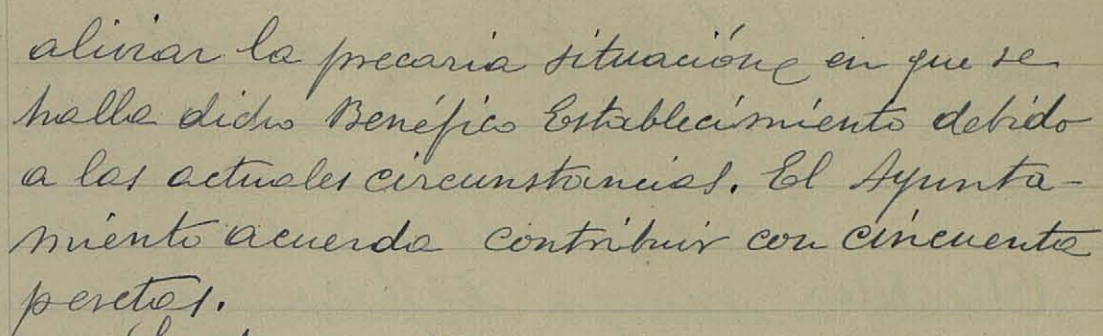 aliviar la precaria situación en que se
halla dicho Benéfico Establecimiento debido
a las actuales circunstancias. El Ayunta-
miento acuerda contribuir con cincuenta
pesetas.